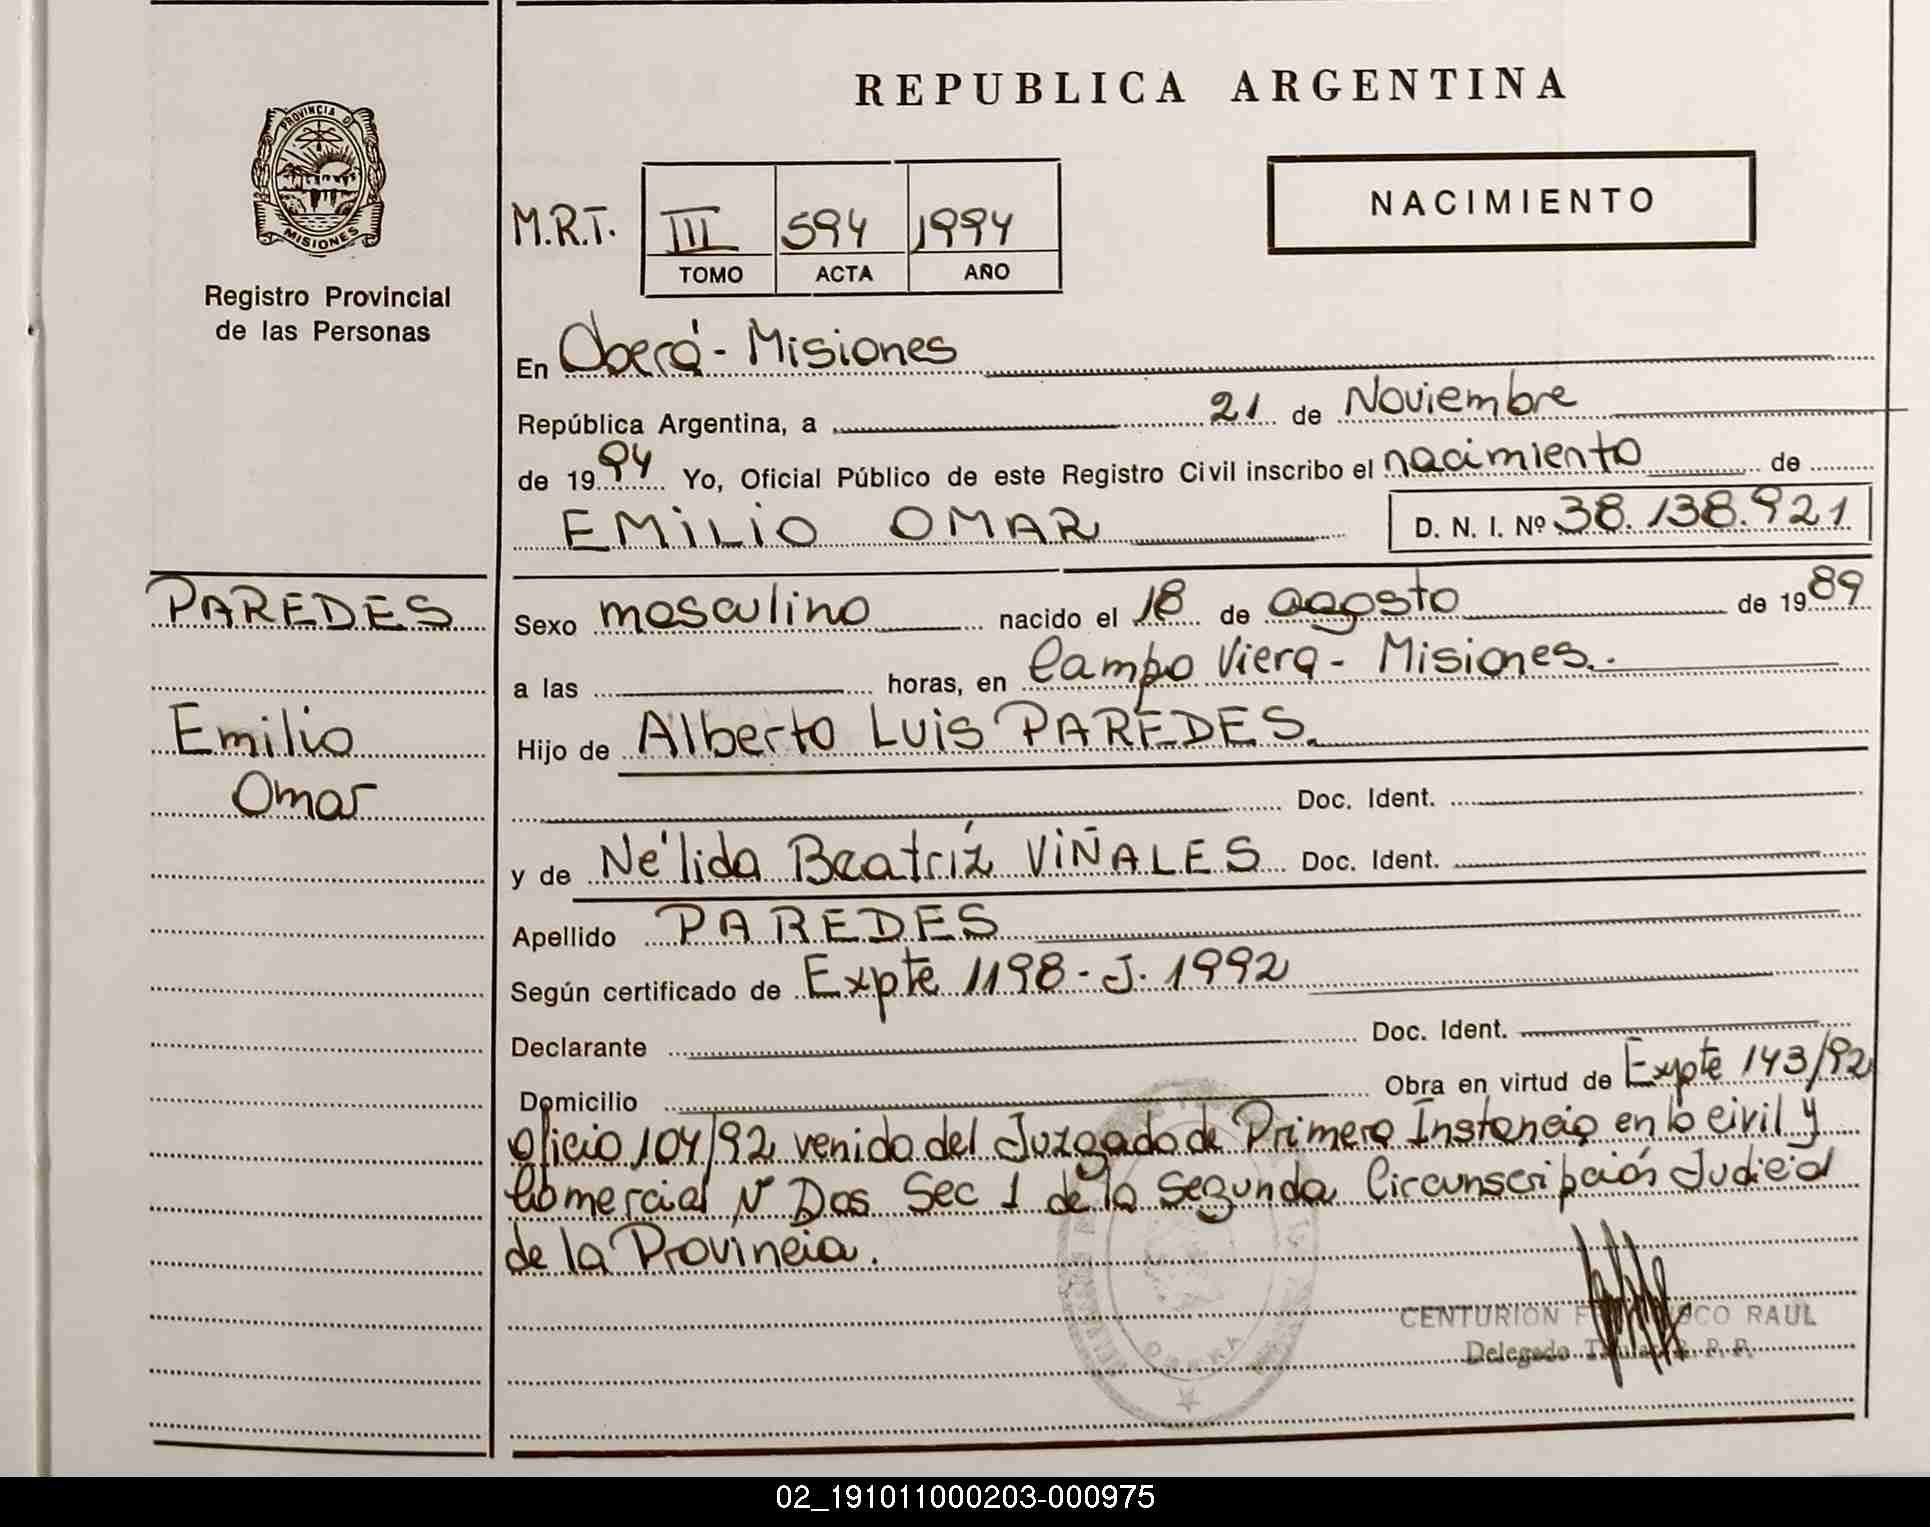 REPUBLICA ARGENTINA
PROVINCIA DE
MISIONES
Registro Provincial
de las Personas
NACIMIENTO
M.R.T. III 594 1994
TOMO ACTA AÑO
En Oberá - Misiones
República Argentina, a 21 de Noviembre
de 1994 Yo, Oficial Público de este Registro Civil inscribo el nacimiento de
EMILIO OMAR D. N. I. Nº 38.138.921
PAREDES
Emilio
Omar
Sexo masculino nacido el 18 de agosto de 1989
a las horas, en Campo Viera - Misiones.
Hijo de Alberto Luis PAREDES.
Doc. Ident.
y de Nélida Beatríz VIÑALES Doc. Ident.
Apellido PAREDES
Según certificado de Expte 1198 - J. 1992
Declarante Doc. Ident.
Domicilio Obra en virtud de Expte 143/92
Oficio 104/92 venido del Juzgado de Primera Instancia en lo civil y
Comercial Nº Dos Sec 1 de la Segunda Circunscripción Judicial
de la Provincia.
CENTURION RAUL
Delegado Titular R. P. P.
OBERA
02_191011000203-000975